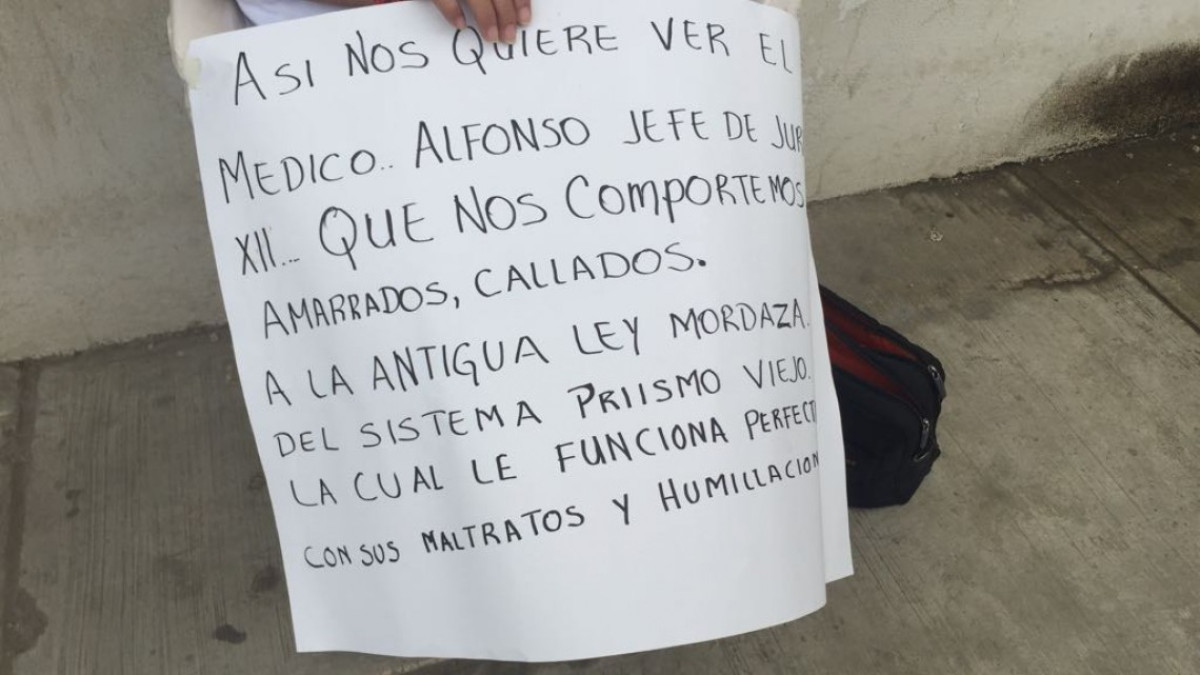 ASI NOS QUIERE VER EL
MEDICO.. ALFONSO JEFE DE JUR
XII... QUE NOS COMPORTEMOS
AMARRADOS, CALLADOS.
A LA ANTIGUA LEY MORDAZA.
DEL SISTEMA PRIISMO VIEJO.
LA CUAL LE FUNCIONA PERFECT
CON SUS MALTRATOS Y HUMILLACION